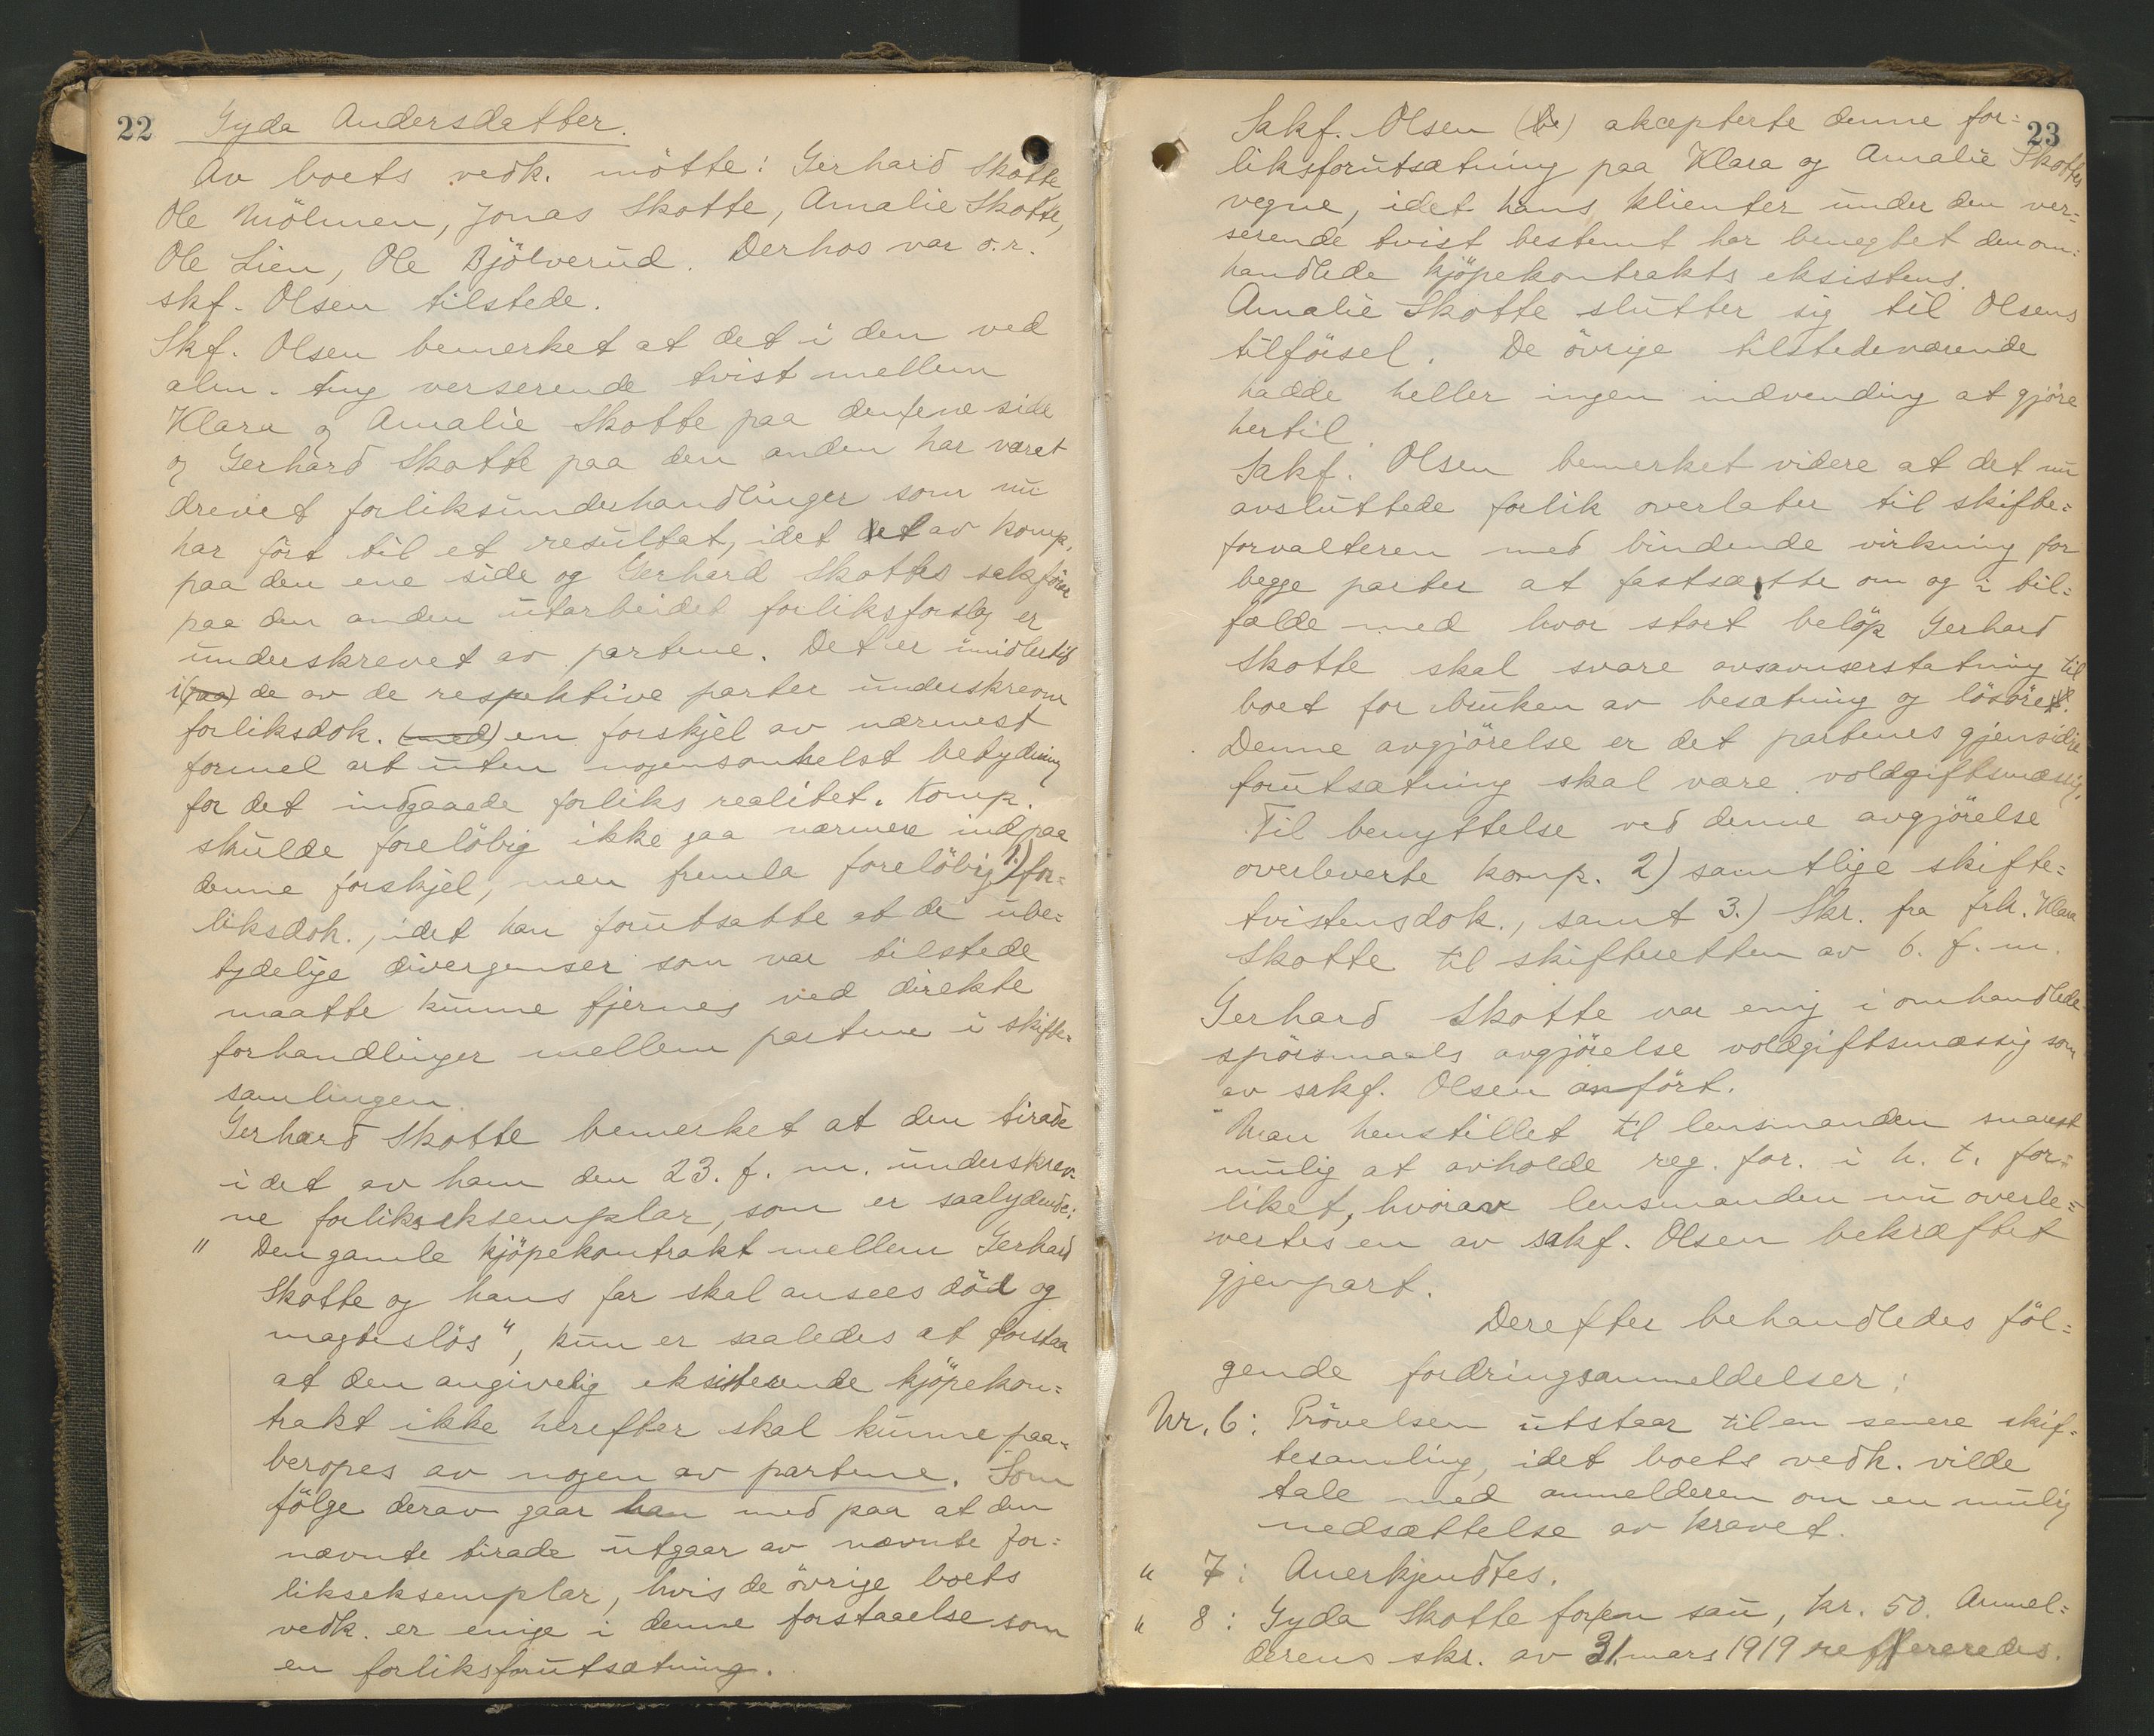 22 Gyda Andersdatter.
Av boets vedk. mötte: Gerhard Skotte,
Ole Mölmen, Jonas Skotte, Amalie Skotte,
Ole Lien, Ole Bjölverud. Derhos var o.r.
skf. Olsen tilstede.
Skf. Olsen bemerket at det i den ved
alm. ting verserende tvist mellem
Klara og Amalie Skotte paa den ene side
og Gerhard Skotte paa den anden har været
drevet forliksunderhandlinger som nu
har fört til et resultat, idet det av komp.
paa den ene side og Gerhard Skottes sakförer
paa den anden utarbeidet forliksforslag er
underskrevet av partene. Det er imidlertid
i (paa) de av de respektive parter underskrevne
forliksdok. (med) en forskjel av nærmest
formel art uten nogensomhelst betydning
for det indgaaede forliks realitet. Komp.
skulde foreløbig ikke gaa nærmere ind paa
denne forskjel, men fremla forelöbig 1.) for=
liksdok., idet han forutsatte at de ube=
tydelige divergenser som var tilstede
maatte kunne fjernes ved direkte
forhandlinger mellem partene i skifte=
samlingen.
Gerhard Skotte bemerket at den tirade
i det av ham den 23. f. m. underskrev=
ne forlikseksemplar, som er saalydende:
" Den gamle kjöpekontrakt mellem Gerhard
Skotte og hans far skal ansees död og
magteslös", kun er saaledes at forstaa
at den angivelig eksisterende kjöpekon=
trakt ikke herefter skal kunne paa=
beropes av nogen av partene. Som
fölge derav gaar han med paa at den
nævnte tirade utgaar av nævnte for=
likseksemplar, hvis de övrige boets
vedk. er enige i denne forstaaelse som
en forliksforutsætning.
23
Sakf. Olsen (be) akcepterte denne for=
liksforutsætning paa Klara og Amalie Skottes
vegne, idet hans klienter under den ver=
serende tvist bestemt har benegtet den om=
handlede kjöpekontrakts eksistens.
Amalie Skotte slutter sig til Olsens
tilförsel. De övrige tilstedeværende
hadde heller ingen indvending at gjöre
hertil.
Sakf. Olsen bemerket videre at det nu
avsluttede forlik overlater til skifte=
forvalteren med bindende virkning for
begge parter at fastsætte om og i til=
fælde med hvor stort belöp Gerhard
Skotte skal svare avsavnserstatning til
boet for bruken av besætning og lösöre.
Denne avgjörelse er det partenes gjensidige
forutsætning skal være voldgiftsmæssig.
Til benyttelse ved denne avgjörelse
overleverte komp. 2) samtlige skifte=
tvistensdok., samt 3.) Skr. fra frk. Klara
Skotte til skifteretten av 6. f. m.
Gerhard Skotte var enig i omhandlede
spörsmaals avgjörelse voldgiftsmæssig som
av sakf. Olsen anfört.
Man henstillet til lensmanden snarest
mulig at avholde reg. for. i h. t. for=
liket, hvorav lensmanden nu overle=
vertes en av sakf. Olsen bekræftet
gjenpart.
Derefter behandledes föl=
gende fordringsanmeldelser:
Nr. 6: Prövelsen utstaar til en senere skif=
tesamling, idet boets vedk. vilde
tale med anmelderen om en mulig
nedsættelse av kravet.
" 7: Anerkjendtes.
" 8: Gyda Skotte for en sau, kr. 50. Anmel=
derens skr. av 31. mars 1919 reffereredes.